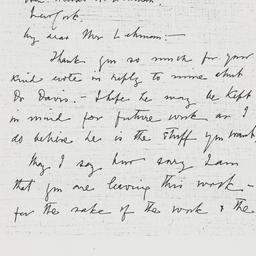 New York.
My dear Mr Lehman:—
Thank you so much for your
kind note in reply to mine about
Dr Davis. — I hope he may be kept
in mind for future work as I
do believe he is the stuff you want
May I say how sorry I am
that you are leaving this work —
for the sake of the work & the